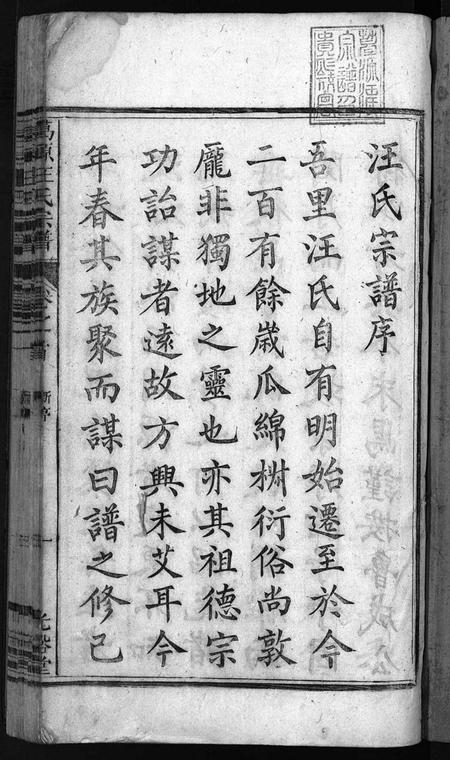 汪氏宗譜序
吾里汪氏自有明始遷至於今
二百有餘歲瓜綿椒衍俗尚敦
龎非獨地之靈也亦其祖德宗
功詒謀者遠故方興未艾耳今
年春其族聚而謀曰譜之修已
汪氏宗譜
卷之首
新序
一
光裕堂